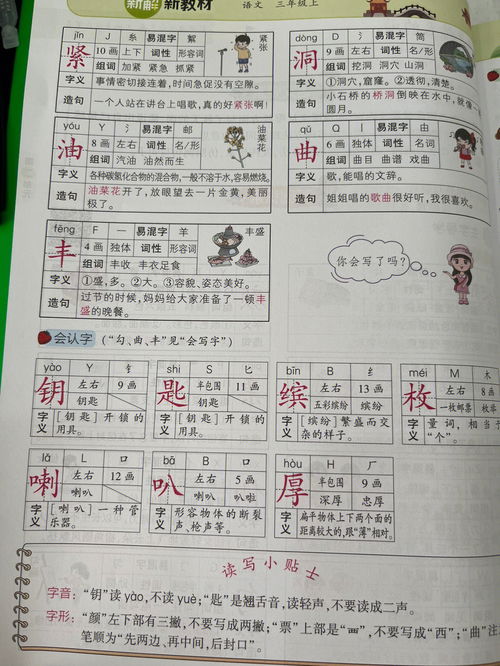 新教材 语文 三年级上
jǐn J 糸 易混字 索
紧 10画 上下 词性 形容词
组词 加紧 紧急 抓紧
紧张
字义 事情密切接连着,时间急促没有空隙。
造句 一个人站在讲台上唱歌,真的好紧张啊!
yóu Y 氵 易混字 邮
油 8画 左右 词性 名/形
组词 汽油 油然而生
油菜花
字义 各种碳氢化合物的混合物,一般不溶于水,容易燃烧。
造句 油菜花开了,放眼望去一片金黄,美丽
极了。
fēng F 一 易混字 羊
丰 4画 独体 词性 形容词
组词 丰收 丰衣足食
丰盛
字义 ①盛,多。②大。③容貌、姿态美好。
造句 过节的时候,妈妈给大家准备了一顿丰
盛的晚餐。
dòng D 氵 易混字 筒
洞 9画 左右 词性 名/形
组词 挖洞 洞穴 山洞
字义 ①洞穴,窟窿。②透彻,清楚。
造句 小石桥的桥洞倒映在水中,就像一
圆月。
qǔ Q 丨 易混字 由
曲 6画 独体 词性 名词
组词 曲目 曲谱 戏曲
字义 歌,能唱的文辞。
造句 姐姐唱的歌曲很好听,我很喜欢。
你会写了吗?
会认字 (“匀、曲、丰”见“会写字”)
yào Y 钅
钥 左右 9画
钥匙
字义 [钥匙]开锁的
用具。
shi S 匕
匙 半包围 11画
钥匙
字义 [钥匙]开锁的
用具。
bīn B 纟
缤 左右 13画
五彩缤纷 缤纷
字义 [缤纷]繁盛而交
杂的样子。
méi M 木
枚 左右 8画
一枚邮票 枚举
字义 量词,相当于
“个”。
lǎ L 口
喇 左右 12画
喇叭
字义 [喇叭]一种管
乐器。
bā B 口
叭 左右 5画
喇叭 叭啦
字义 形容物体的断裂
声、枪声等。
hòu H 厂
厚 半包围 9画
深厚 忠厚
字义 扁平物体上下两个面的
距离较大的,跟“薄”相对。
读写小贴士
字音:“钥”读yào,不读yuè;“匙”是翘舌音,读轻声,不要读成二声。
字形:“颜”左下部有三撇,不要写成两撇;“票”上部是“覀”,不要写成“西”;“曲”注
笔顺为“先两边、再中间,后封口”。